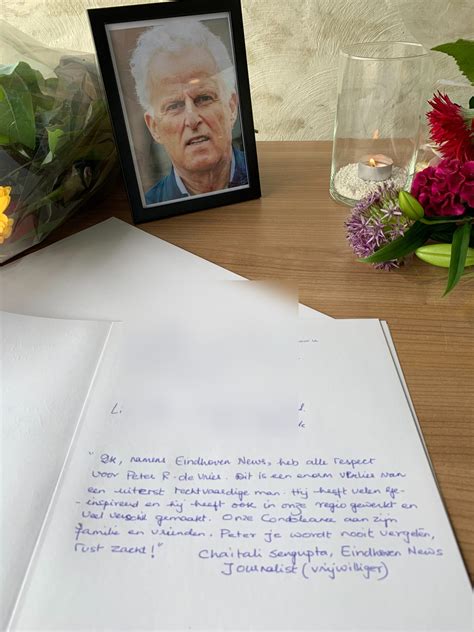 L
k
"Ik, namens Eindhoven News, heb alle respect
voor Peter R. de Vries. Dit is een enorm verlies van
een uiterst rechtvaardige man. Hij heeft velen ge-
-inspireerd en hij heeft ook in onze regio gewerkt en
veel verschil gemaakt. Onze Condoleance aan zijn
familie en vrienden. Peter je wordt nooit vergeten,
rust zacht!"
Chaitali Sengupta, Eindhoven News
Journalist (vrijwilliger)